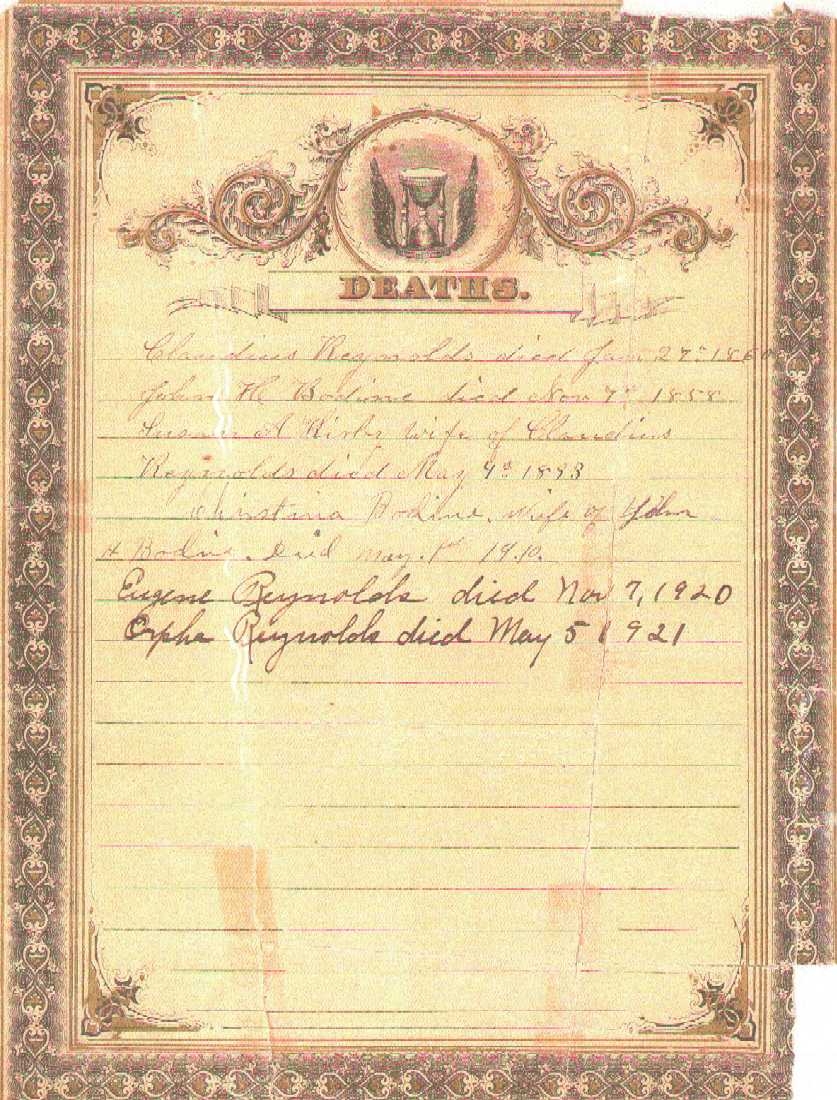 DEATHS.
Claudius Reynolds died Jan 27th 1860
John H Bodine died Nov 7th 1858
Susan A Kirby wife of Claudius
Reynolds died May 9th 1883
Christina Bodine, wife of John
H Bodine. Died May. 1st 1910.
Eugene Reynolds died Nov 7, 1920
Orpha Reynolds died May 5 1921